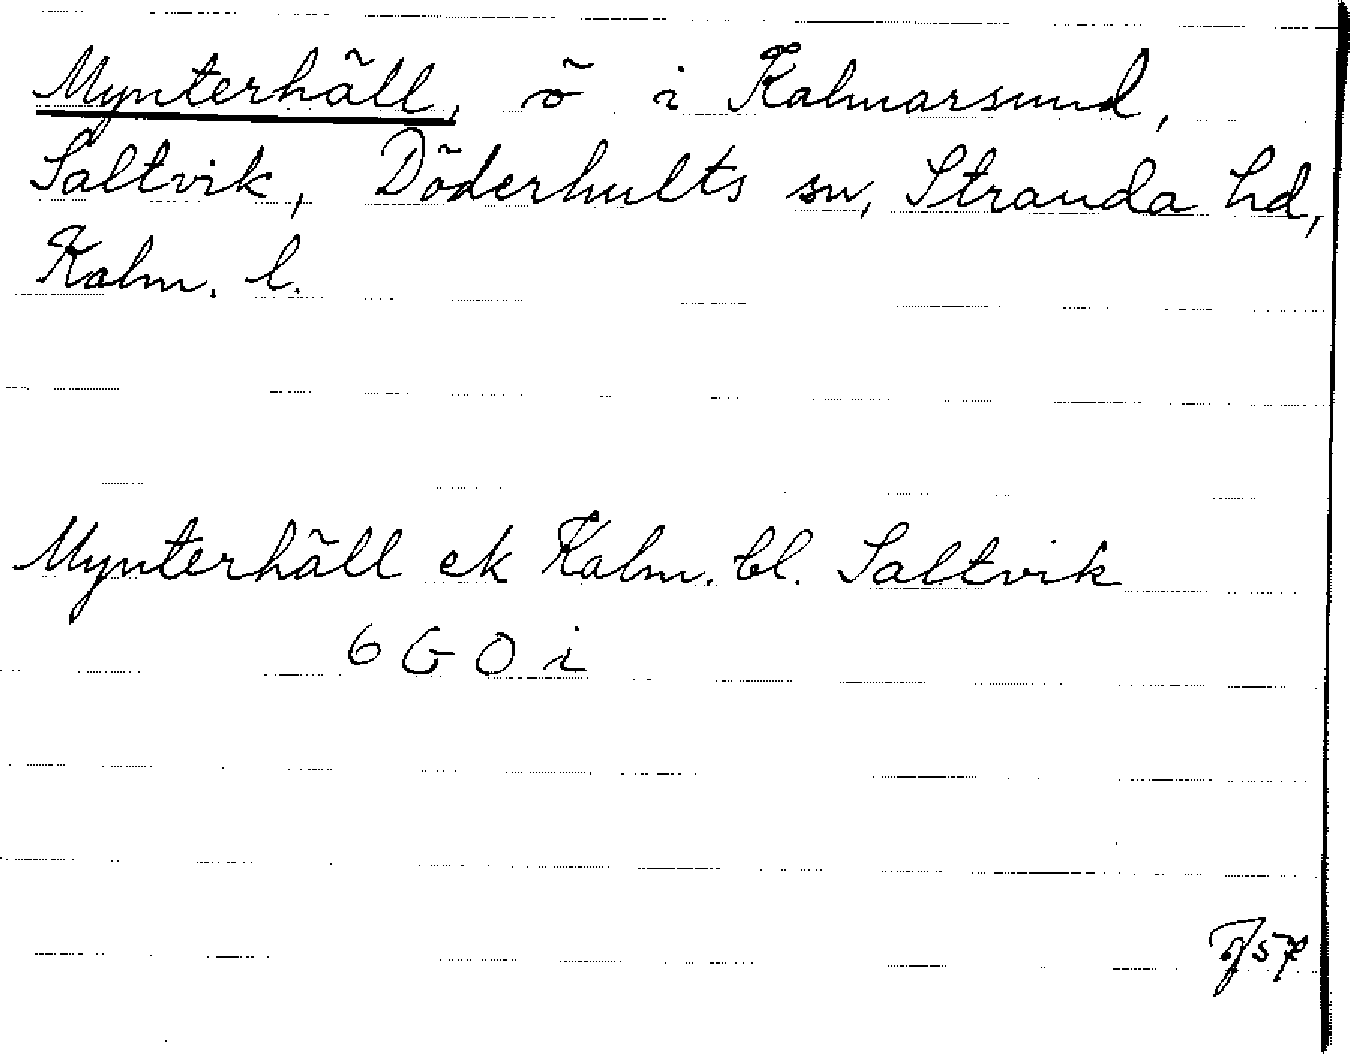 Mynterhäll, ö i Kalmarsund,
Saltvik, Döderhults sn, Stranda hd,
Kalm. l.
Mynterhäll ek Kalm. bl. Saltvik
6 G 0 i
57